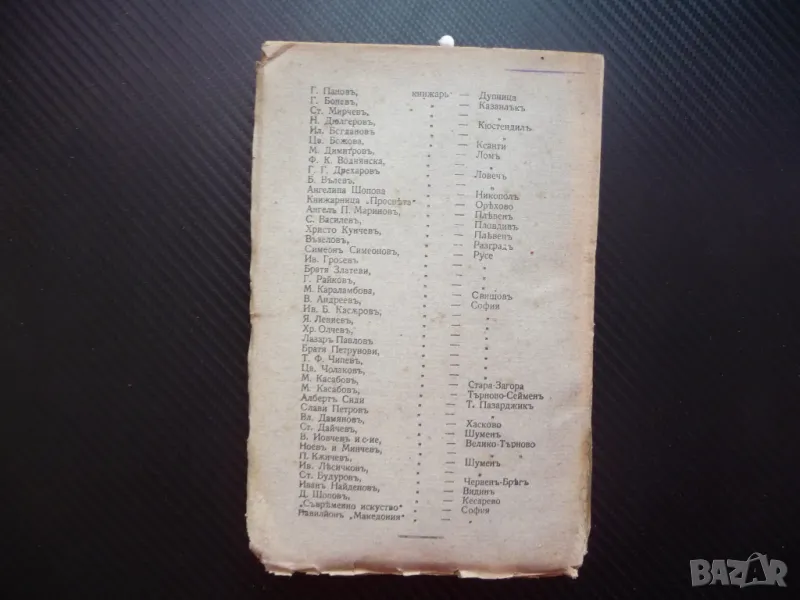 Г. Пановъ, книжарь — Дупница
Г. Боневъ, " — Казанлъкъ
Ст. Мирчевъ, " — "
Н. Дюлгеровъ, " — Кюстендилъ
Ил. Богдановъ " — "
Цв. Божова, " — Ксанти
М. Димитровъ, " — Ломъ
Ф. К. Воднянска, " — "
Г. Г. Дрехаровъ " — Ловечъ
Б. Вълевъ, " — "
Ангелина Шопова " — Никополъ
Книжарница „Просвѣта" " — Орѣхово
Ангелъ П. Мариновъ, " — Плѣвенъ
С. Василевъ, " — Пловдивъ
Христо Кунчевъ, " — Плѣвенъ
Възеловъ, " — Разградъ
Симеонъ Симеоновъ, " — Русе
Ив. Грозевъ " — "
Братя Златеви, " — "
Г. Райковъ, " — "
М. Караламбова, " — Свищовъ
В. Андреевъ, " — София
Ив. Б. Касѫровъ, " — "
Я. Левиевъ, " — "
Хр. Олчевъ, " — "
Лазаръ Павловъ " — "
Братя Петрунови, " — "
Т. Ф. Чипевъ, " — "
Цв. Чолаковъ, " — "
М. Касабовъ, " — Стара-Загора
М. Касабовъ, " — Търново-Сейменъ
Албертъ Сиди " — Т. Пазарджикъ
Слави Петровъ " — "
Вл. Дамяновъ, " — Хасково
Ст. Дайчевъ, " — Шуменъ
В. Йовчевъ и с-ие, " — Велико-Търново
Ноевъ и Минчевъ, " — "
П. Кжичевъ, " — Шуменъ
Ив. Лѣсичковъ, " — "
Ст. Будуровъ, " — Червенъ-Брѣгъ
Иванъ Найденовъ, " — Видинъ
Д. Шоповъ, " — Кесарево
„Съврѣменно искуство" " — София
Павилйонъ „Македония" " — "
BAZAR